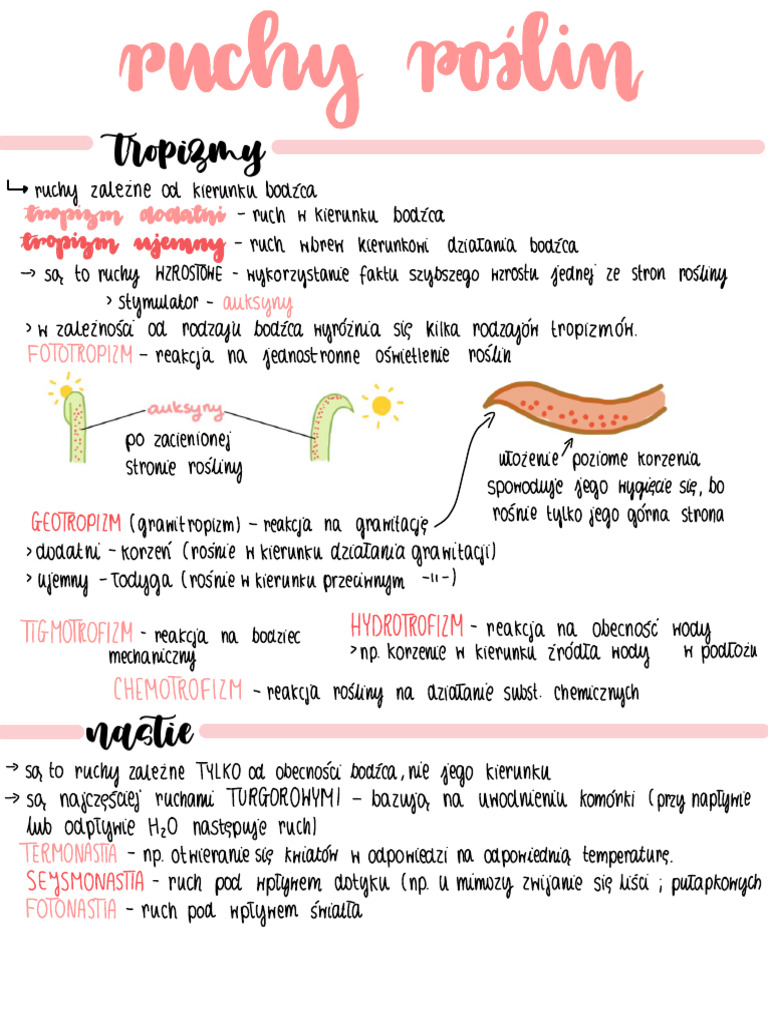 ruchy roślin
tropizmy
↳ ruchy zależne od kierunku bodźca
tropizm dodatni - ruch w kierunku bodźca
tropizm ujemny - ruch wbrew kierunkowi działania bodźca
→ są to ruchy WZROSTOWE - wykorzystanie faktu szybszego wzrostu jednej ze stron rośliny
> stymulator - auksyny
> w zależności od rodzaju bodźca wyróżnia się kilka rodzajów tropizmów.
FOTOTROPIZM - reakcja na jednostronne oświetlenie roślin
auksyny
po zacienionej
stronie rośliny
ułożenie poziome korzenia
spowoduje jego wygięcie się, bo
rośnie tylko jego górna strona
GEOTROPIZM (grawitropizm) - reakcja na grawitację
> dodatni - korzeń (rośnie w kierunku działania grawitacji)
> ujemny - łodyga (rośnie w kierunku przeciwnym -11-)
TIGMOTROFIZM - reakcja na bodziec
mechaniczny
HYDROTROFIZM - reakcja na obecność wody
> np. korzenie w kierunku źródła wody w podłożu
CHEMOTROFIZM - reakcja rośliny na działanie subst. chemicznych
nastie
→ są to ruchy zależne TYLKO od obecności bodźca, nie jego kierunku
→ są najczęściej ruchami TURGOROWYMI - bazują na uwodnieniu komórki (przy napływie
lub odpływie H₂O następuje ruch)
TERMONASTIA - np. otwieranie się kwiatów w odpowiedzi na odpowiednią temperaturę.
SEJSMONASTIA - ruch pod wpływem dotyku (np. u mimozy zwijanie się liści ; pułapkowych
FOTONASTIA - ruch pod wpływem światła